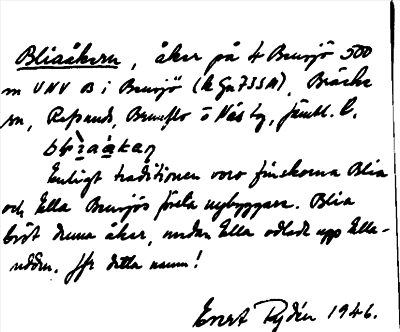 Bliaåkern, åker på t Bensjö 500
m VNV B i Bensjö (k Ga7355A), Bräcke
sn, Refsunds, Brunflo o Näs tg, Jämtl. l.
Enligt traditionen voro finskorna Blia
och Ella Bensjös första nybyggare. Blia
bröt denna åker, medan Ella odlade upp Ella-
udden. Jfr detta namn!
Evert Rydén 1946.